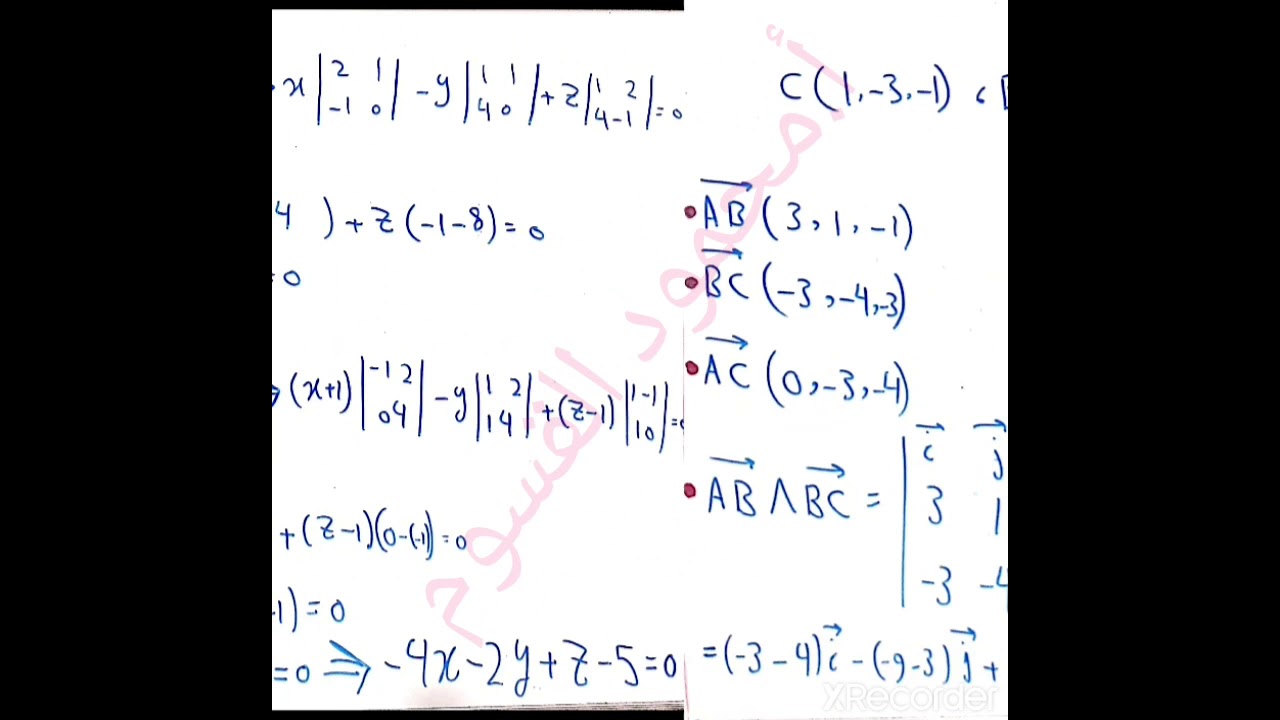 x |2 1 / -1 0| - y |1 1 / 4 0| + z |1 2 / 4 -1| = 0
4 ) + z (-1-8) = 0
= 0
(x+1) |-1 2 / 0 4| - y |1 2 / 1 4| + (z-1) |1 -1 / 1 0| = 0
+ (z-1)(0-(-1)) = 0
-1) = 0
= 0 ⇒ -4x - 2y + z - 5 = 0
C (1, -3, -1) ,
• AB (3, 1, -1)
• BC (-3, -4, -3)
• AC (0, -3, -4)
• AB ∧ BC = | i j
3 1
-3 -4
= (-3-4) i - (-9-3) j +
محمود القسوم
XRecorder